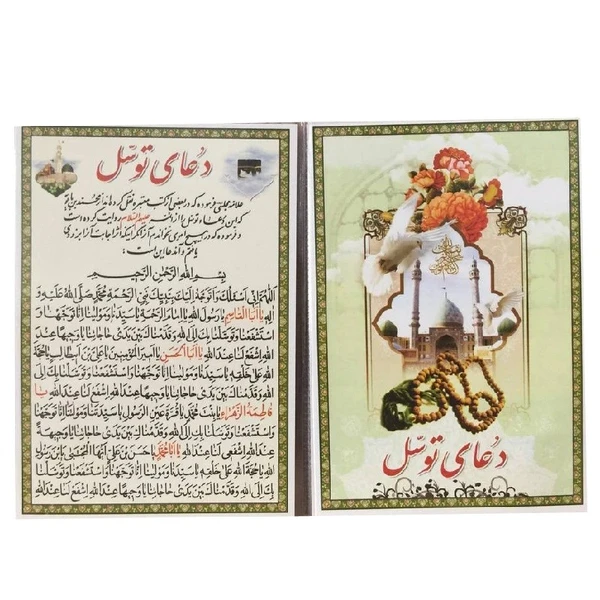 دعای توسل
علامه مجلسی فرموده که در بعضی از کتب معتبره
که این دعا
و فرموده که در هیچ امری نخواندم آن را مگر آنکه اثر اجابت آنرا بزودی
یافتم و آن دعا این است:
بِسْمِ اللهِ الرَّحْمٰنِ الرَّحیمِ
اَللّهُمَّ اِنّی اَسْئَلُكَ وَاَتَوَجَّهُ اِلَیْكَ بِنَبِیِّكَ نَبِیِّ الرَّحْمَةِ مُحَمَّدٍ صَلَّی اللهُ عَلَیْهِ وَ
الِهِ یا اَبَا الْقاسِمِ یا رَسُولَ اللهِ یا اِمامَ الرَّحْمَةِ یا سَیِّدَنا وَمَوْلینا اِنّا تَوَجَّهْنا وَ
اسْتَشْفَعْنا وَتَوَسَّلْنا بِكَ اِلَی اللهِ وَقَدَّمْناكَ بَیْنَ یَدَیْ حاجاتِنا یا وَجیهًا عِنْدَ
اللهِ اِشْفَعْ لَنا عِنْدَ اللهِ یا اَبَا الْحَسَنِ یا اَمیرَ الْمُؤْمِنینَ یا عَلِیَّ بْنَ اَبیطالِبٍ یا حُجَّةَ
اللهِ عَلی خَلْقِهِ یا سَیِّدَنا وَمَوْلینا اِنّا تَوَجَّهْنا وَاسْتَشْفَعْنا وَتَوَسَّلْنا بِكَ اِلَی
اللهِ وَقَدَّمْناكَ بَیْنَ یَدَیْ حاجاتِنا یا وَجیهًا عِنْدَ اللهِ اِشْفَعْ لَنا عِنْدَ اللهِ یا
فاطِمَةَ الزَّهْراءِ یا بِنْتَ مُحَمَّدٍ یا قُرَّةَ عَیْنِ الرَّسُولِ یا سَیِّدَتَنا وَمَوْلاتَنا اِنّا تَوَجَّهْنا
وَاسْتَشْفَعْنا وَتَوَسَّلْنا بِكِ اِلَی اللهِ وَقَدَّمْناكِ بَیْنَ یَدَیْ حاجاتِنا یا وَجیهَةً
عِنْدَ اللهِ اِشْفَعی لَنا عِنْدَ اللهِ یا اَبا مُحَمَّدٍ یا حَسَنَ بْنَ عَلِیٍّ اَیُّهَا الْمُجْتَبی یَا بْنَ رَسُولِ
اللهِ یا حُجَّةَ اللهِ عَلی خَلْقِهِ یا سَیِّدَنا وَمَوْلینا اِنّا تَوَجَّهْنا وَاسْتَشْفَعْنا وَتَوَسَّلْنا
بِكَ اِلَی اللهِ وَقَدَّمْناكَ بَیْنَ یَدَیْ حاجاتِنا یا وَجیهًا عِنْدَ اللهِ اِشْفَعْ لَنا عِنْدَ اللهِ
دعای توسل